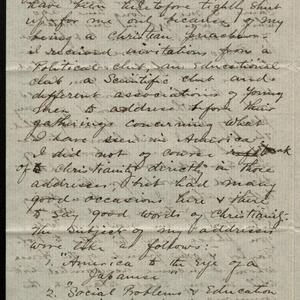 have been heretofore tightly shut
up for me only because of my
being a Christian preacher.
I received invitations from a
Political club, an Educational
club, a Scientific club and
different associations of young
men to address before their
gatherings concerning what
I have seen in America.
I did not of course
of Christianity directly in those
addresses, but had many
good occasions here & there
to say good words of Christianity.
The subject of my addresses
were like as follows:
1. "America to the Eye of a
Japanese"
2. "Social Problems & Education